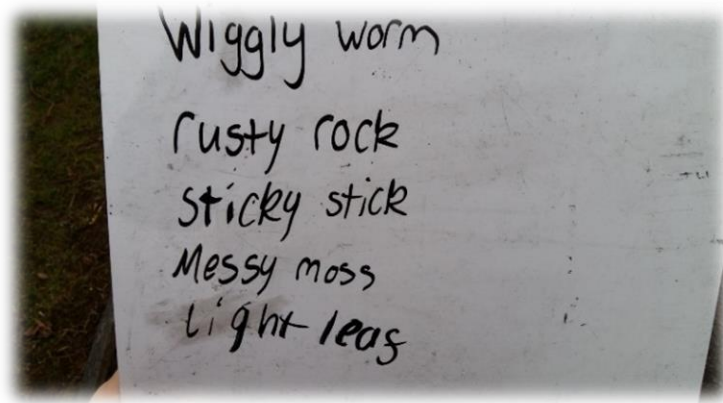 Wiggly worm
rusty rock
sticky stick
Messy moss
light leaf